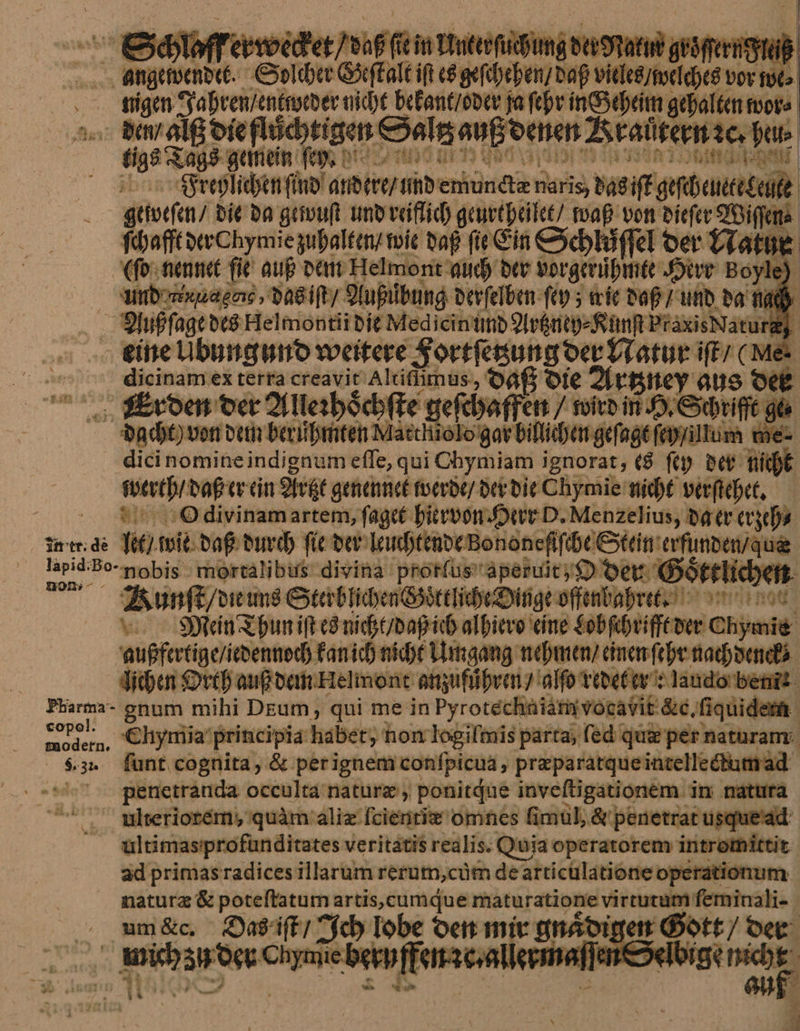 Schlaff erwecket / daß sie in Untersuchung der Natur grössern Fleiß
angewendet. Solcher Gestalt ist es geschehen / daß vieles / welches vor we-
nigen Jahren / entweder nicht bekant / oder ja sehr in Geheim gehalten wor-
den / alß die fluͤchtigen Saltz auß denen Kraͤutern ꝛc. heu-
tigs Tags gemein sey.
Freylichen sind andere / und emunctæ naris, das ist gescheuete Leute
gewesen / die da gewust und reiflich geurtheilet / waß von dieser Wissen-
schafft der Chymie zuhalten / wie daß sie Ein Schluͤssel der Natur
(so nennet sie auß dem Helmont auch der vorgeruͤhmte Herr Boyle)
und das ist / Außuͤbung derselben sey; wie daß / und da nach
Außsage des Helmontii die Medicin und Artzney-Kunst Praxis Naturæ,
eine Ubung und weitere Fortsetzung der Natur ist / (Me-
dicinam ex terra creavit Altissimus, daß die Artzney aus der
Erden der Allerhoͤchste geschaffen / wird in H. Schrifft ge-
dacht) von dem beruͤhmten Matthiolo gar billichen gesagt sey / illum me-
dici nomine indignum esse, qui Chymiam ignorat, es sey der nicht
werth / daß er ein Artzt genennet werde / der die Chymie nicht verstehet.
O divinam artem, saget hiervon Herr D. Menzelius, da er erzeh-
In tr. de let / wie daß durch sie der leuchtende Bononesische Stein erfunden / quæ
lapid. Bo- nobis mortalibus divina prorsus aperuit, O der Goͤttlichen
non. Kunst / die uns Sterblichen Goͤttliche Dinge offenbahret.
Mein Thun ist es nicht / daß ich alhiero eine Lobschrifft der Chymie
außfertige / iedennoch kan ich nicht Umgang nehmen / einen sehr nachdenck-
lichen Orth auß dem Helmont anzufuͤhren / also redet er: laudo beni-
Pharma- gnum mihi Deum, qui me in Pyrotechniam vocavit &c. siquidem
copol. modern. Chymia principia habet, non logismis parta, sed quæ per naturam
§. 32. sunt cognita, & per ignem conspicua, præparatque intellectum ad
penetranda occulta naturæ, ponitque investigationem in natura
ulteriorem, quàm aliæ scientiæ omnes simul, & penetrat usque ad
ultimas profunditates veritatis realis. Quia operatorem intromittit
ad primas radices illarum rerum, cùm de articulatione operationum
naturæ & potestatum artis, cumque maturatione virtutum seminali-
um &c. Das ist / Ich lobe den mir gnaͤdigen Gott / der
mich zu der Chymie beruffen ꝛc. allermassen Selbige nicht
auf